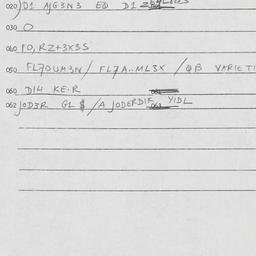 020) D1 AJG3N3 EQ D1
030 O
040 FO, RZ+3X3S
050 FL70UM3N/ FL7A..ML3X /QB VARIETI
060 D14 KE.R
062 JOD3R G1 $ /A JODERDIK YIDL